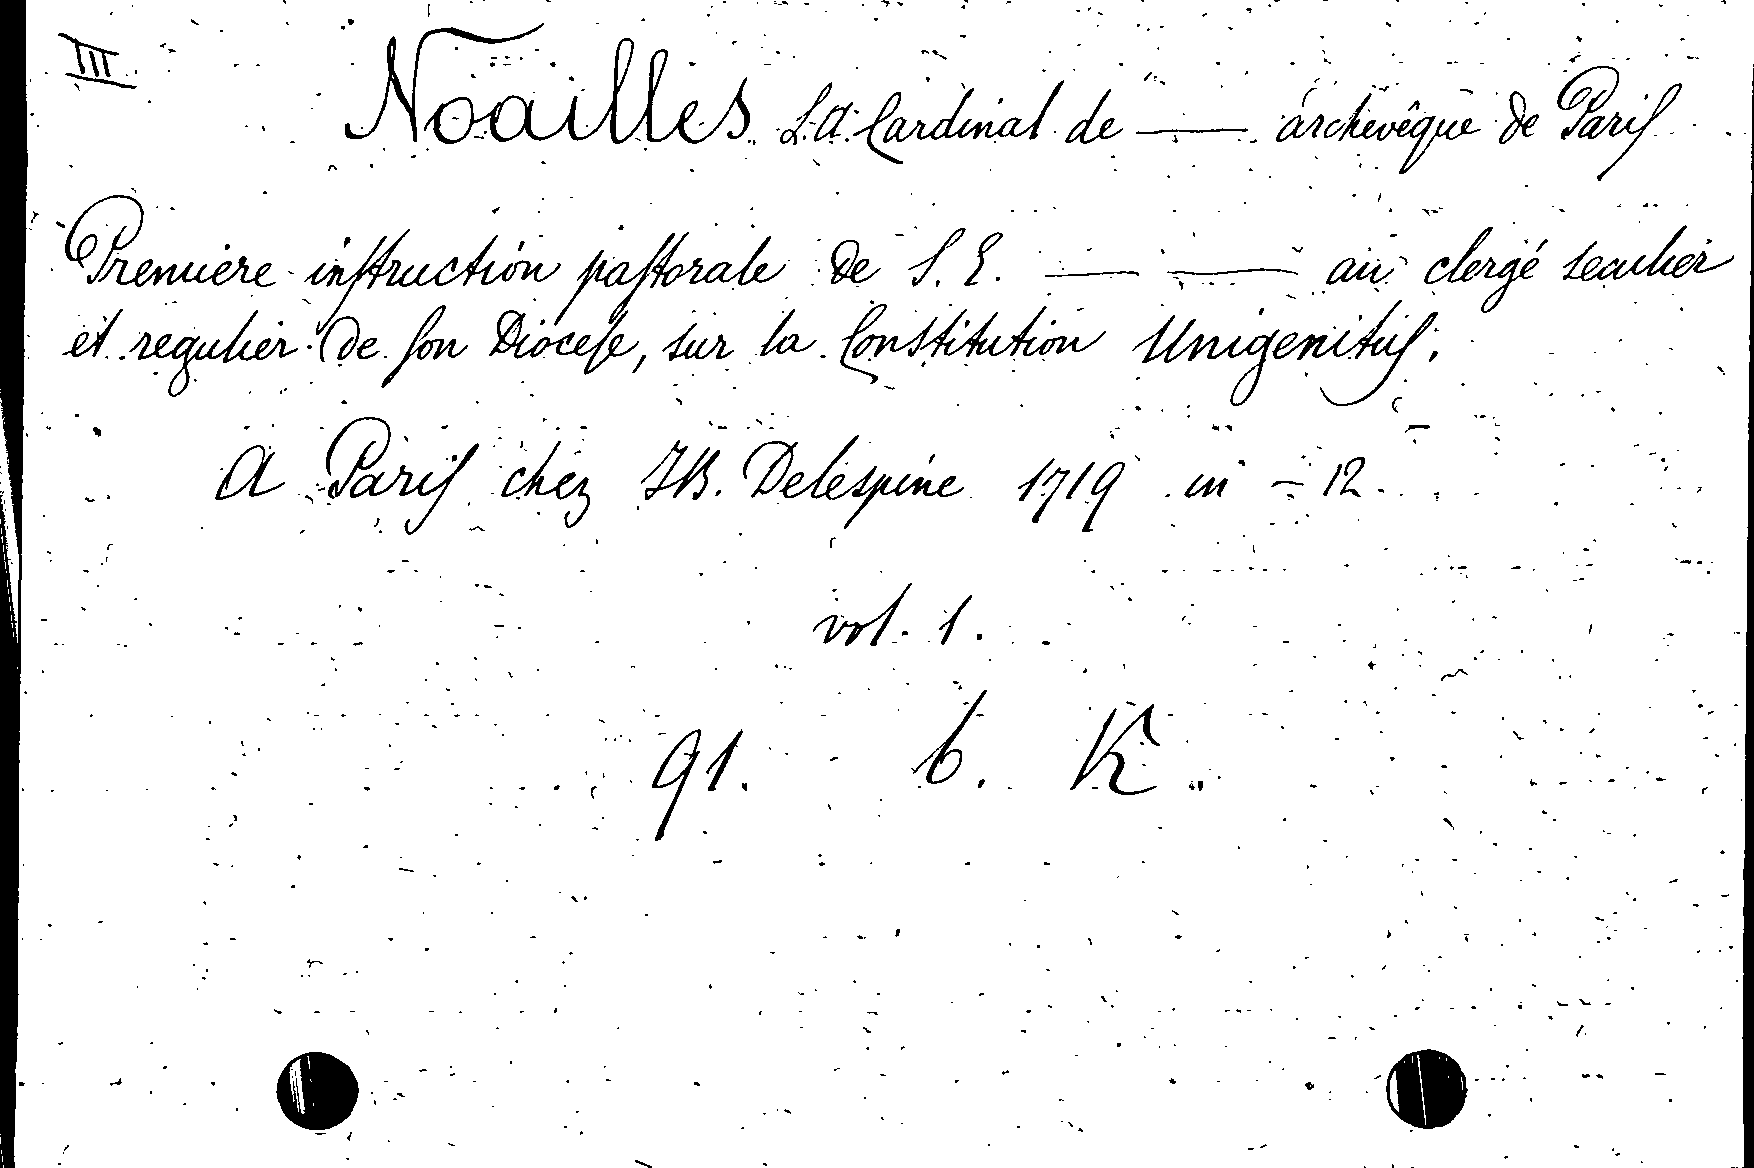 III
Noailles L.A. Cardinal de — archévêque de Paris
Première instruction pastorale de S. E. — — au clergé seculier
et regulier de son Diocese, sur la Constitution Unigenitus.
A Paris chez J.B. Delespine 1719 in - 12.
vol. 1.
91. b. K.